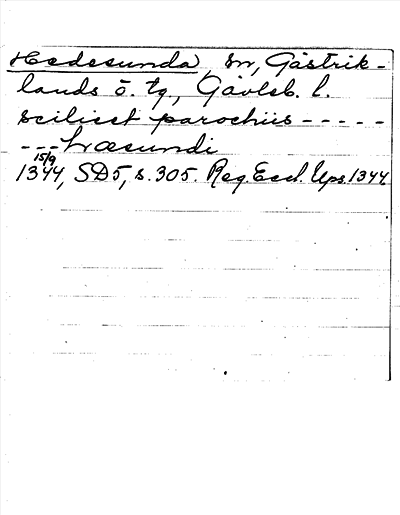 Hedesunda, sn, Gästrik-
lands ö. tg, Gävleb. l.
scilicet parochiis - - - - -
- - - Hæsundi
15/9
1344, SD5, s. 305. Reg. Eccl. Ups. 1344